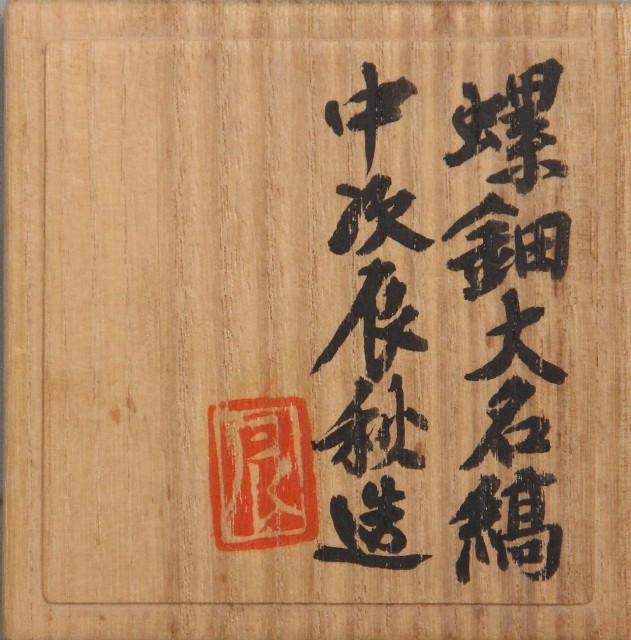 螺鈿大名縞
中次辰秋造
辰